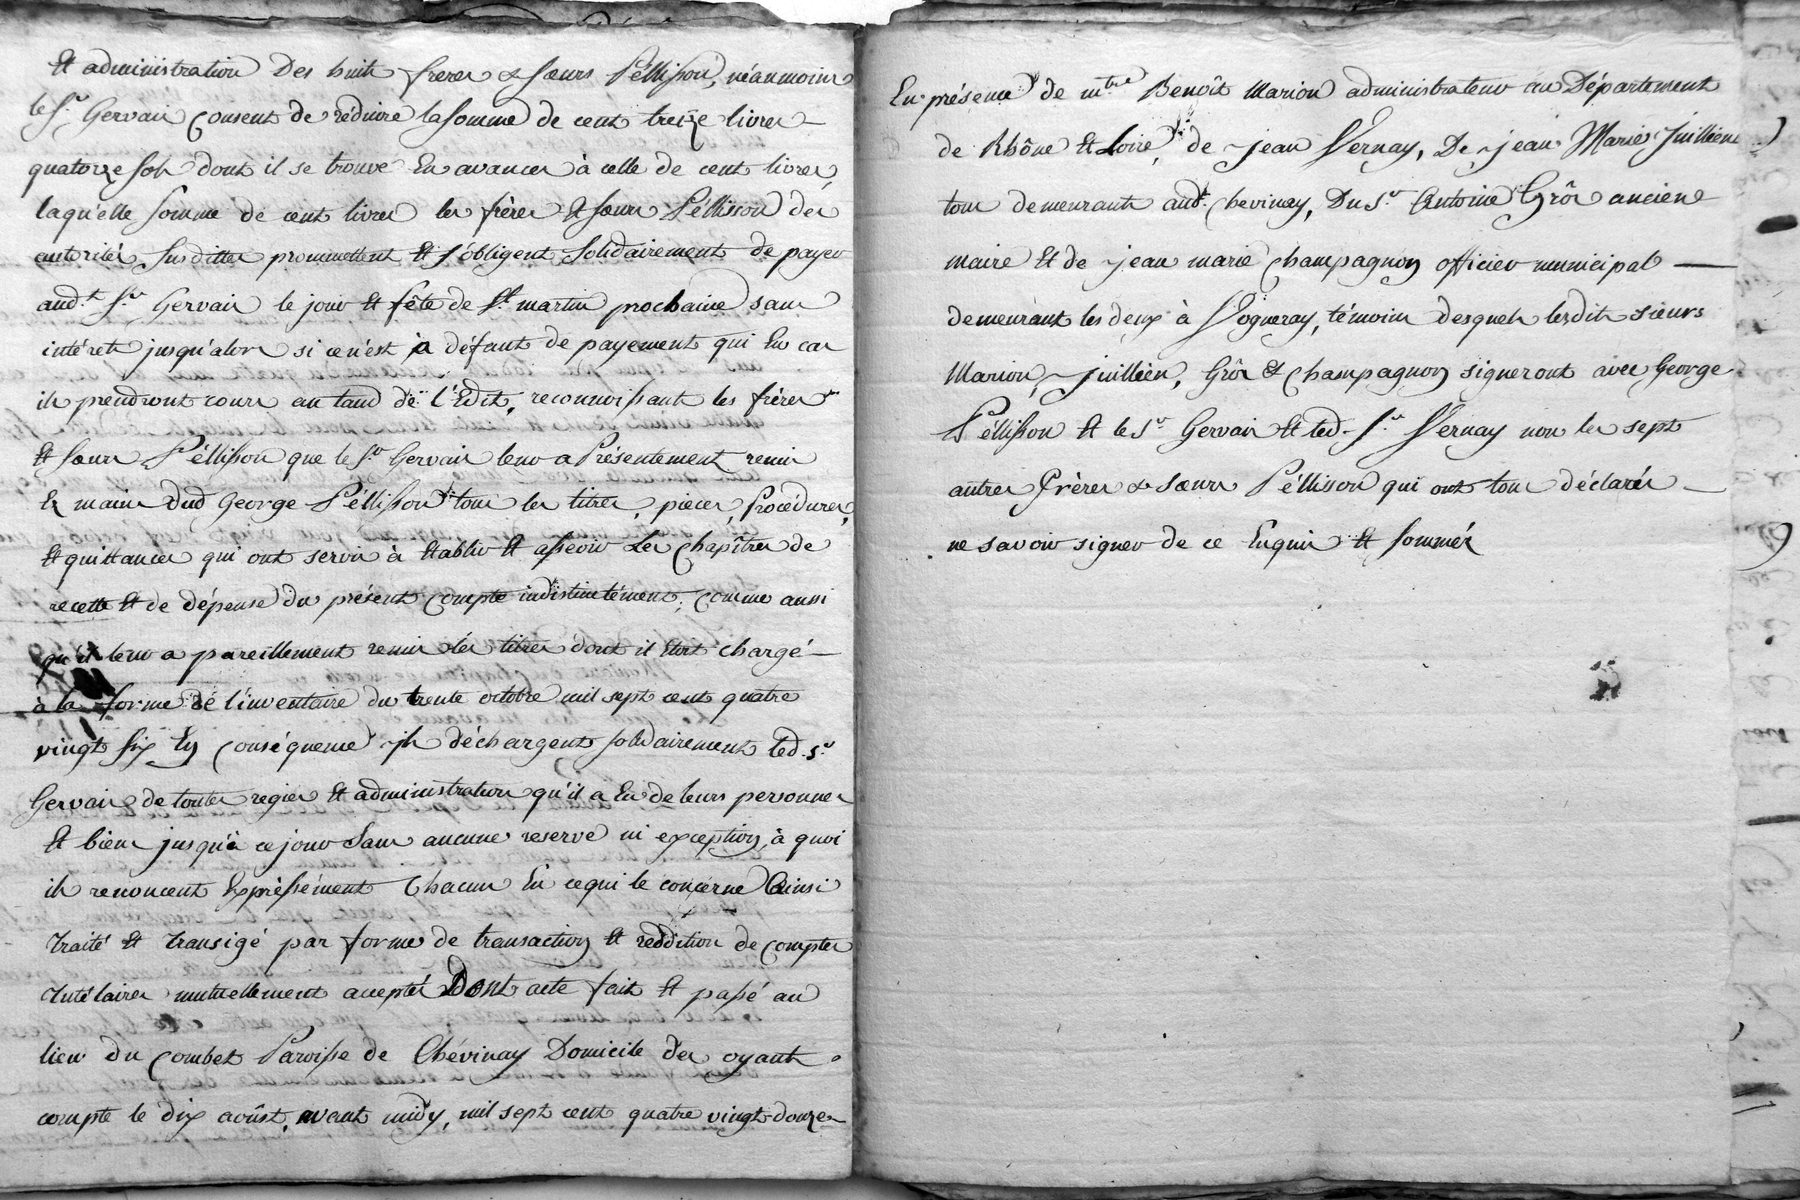 Et administration Des huit freres & sœurs Péllisson, néanmoins
le Sr. Gervais consent de réduire la somme de cent treize livres
quatorze sols dont il se trouve En avances à celle de cent livres,
laquelle somme de cent livres les frères Et sœurs Péllisson des
autorités susdittes promettent Et s'obligent solidairement de payer
aud.t Sr. Gervais le jour Et fête de St. martin prochaine sans
intérets jusqu'alors si ce n'est à défaut de payement qui En cas
ils prendront cours au taud de l'Edit, reconnoissant les frères
Et sœurs Péllisson que le Sr. Gervais leur a Présentement remis
Es mains dud George Péllisson tous les titres, pieces, Procédures,
Et quittances qui ont servis à Etablir Et asseoir Les Chapîtres de
recette Et de dépense du présent compte indistinctément, comme aussi
qu'il leur a pareillement remis les titres dont il Etoit chargé
à la forme de l'inventaire du trente octobre mil sept cent quatre
vingt six En conséquence ils déchargent solidairement led. Sr.
Gervais de toutes regies Et administration qu'il a Eu de leurs personnes
Et biens jusqu'à ce jour sans aucune reserve ni exception, à quoi
ils renoncent Expréssément Chacun En ce qui le concerne Ainsi
traité Et transigé par forme de transaction Et reddition de comptes
Tutélaires mutuellement accepté Dont acte fait Et passé au
lieu du Combet Paroisse de Chévinay Domicile des oyants
compte le dix août, avant midy, mil sept cent quatre vingt douze
En présence de mtre Benoît Marion administrateur au Département
de Rhône Et Loire, de jean Vernay, De jean Marie Juillien
tous demeurants aud.t Chevinay, Du Sr. Antoine Grôs ancien
maire Et de jean marie Champagnon officier municipal
demeurant les deux à Vogneray, témoins desquels lesdits sieurs
Marion, Juillien, Grôs & Champagnon signeront avec George
Péllisson Et le Sr. Gervais Et led. Sr. Vernay non les sept
autres frères & sœurs Péllisson qui ont tous déclarés
ne savoir signer de ce Enquis Et sommés